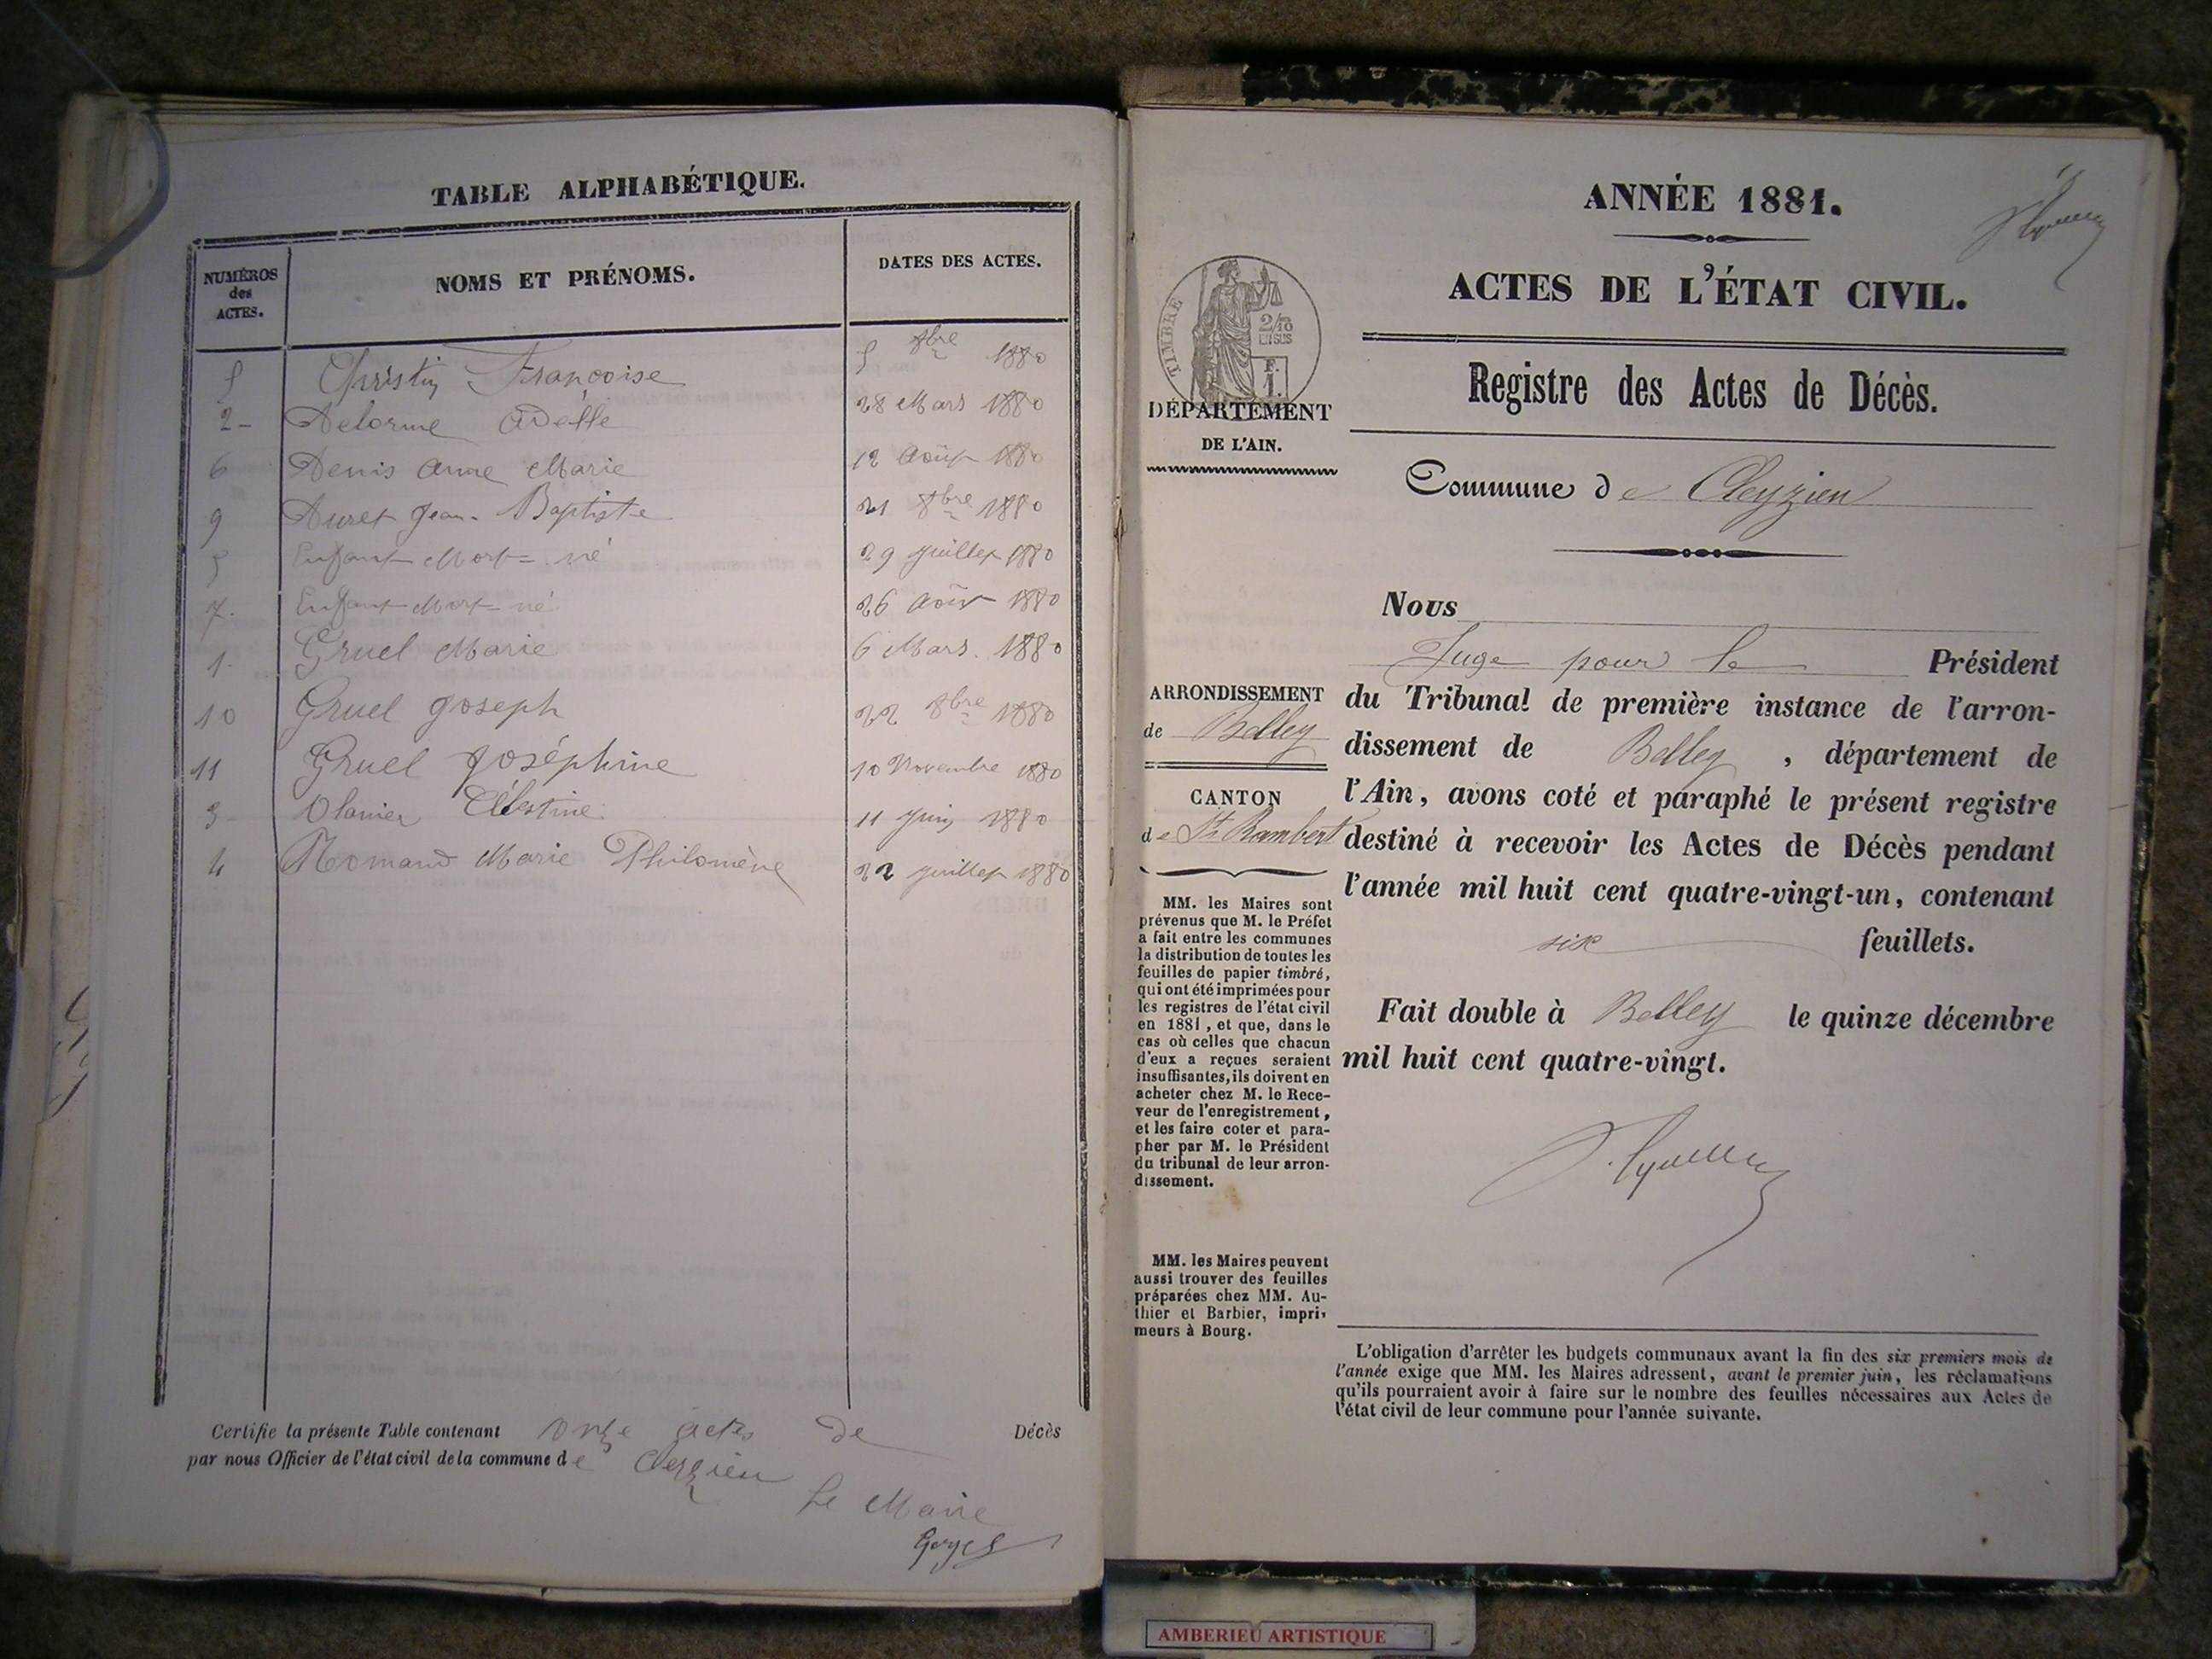 TABLE ALPHABÉTIQUE.
NUMÉROS des ACTES.
NOMS ET PRÉNOMS.
DATES DES ACTES.
Christin Françoise 8bre 1880
2 Delorme Adèlle 28 Mars 1880
6 Denis Anne Marie 12 Août 1880
9 Jean-Baptiste 21 8bre 1880
5 Enfant Mort-né 29 juillet 1880
7. Enfant Mort-né 26 Août 1880
1. Gruel Marie 6 Mars. 1880
10 Gruel Joseph 22 8bre 1880
11 Gruel Joséphine 10 Novembre 1880
3 Célestine 11 Juin 1880
4 Romand Marie Philomène 22 juillet 1880
Certifie la présente Table contenant onze actes de Décès
par nous Officier de l'état civil de la commune de Cleyzieu
Le Maire
ANNÉE 1881.
ACTES DE L'ÉTAT CIVIL.
TIMBRE
2/10
EN SUS
F.
1.
DÉPARTEMENT
DE L'AIN.
Registre des Actes de Décès.
Commune de Cleyzieu
Nous
Juge pour le Président
du Tribunal de première instance de l'arron-
dissement de Belley, département de
l'Ain, avons coté et paraphé le présent registre
destiné à recevoir les Actes de Décès pendant
l'année mil huit cent quatre-vingt-un, contenant
six feuillets.
Fait double à Belley le quinze décembre
mil huit cent quatre-vingt.
ARRONDISSEMENT
de Belley
CANTON
de St Rambert
MM. les Maires sont
prévenus que M. le Préfet
a fait entre les communes
la distribution de toutes les
feuilles de papier timbré,
qui ont été imprimées pour
les registres de l'état civil
en 1881, et que, dans le
cas où celles que chacun
d'eux a reçues seraient
insuffisantes, ils doivent en
acheter chez M. le Rece-
veur de l'enregistrement,
et les faire coter et para-
pher par M. le Président
du tribunal de leur arron-
dissement.
MM. les Maires peuvent
aussi trouver des feuilles
préparées chez MM. Au-
thier et Barbier, impri-
meurs à Bourg.
L'obligation d'arrêter les budgets communaux avant la fin des six premiers mois de
l'année exige que MM. les Maires adressent, avant le premier juin, les réclamations
qu'ils pourraient avoir à faire sur le nombre des feuilles nécessaires aux Actes de
l'état civil de leur commune pour l'année suivante.
AMBERIEU ARTISTIQUE